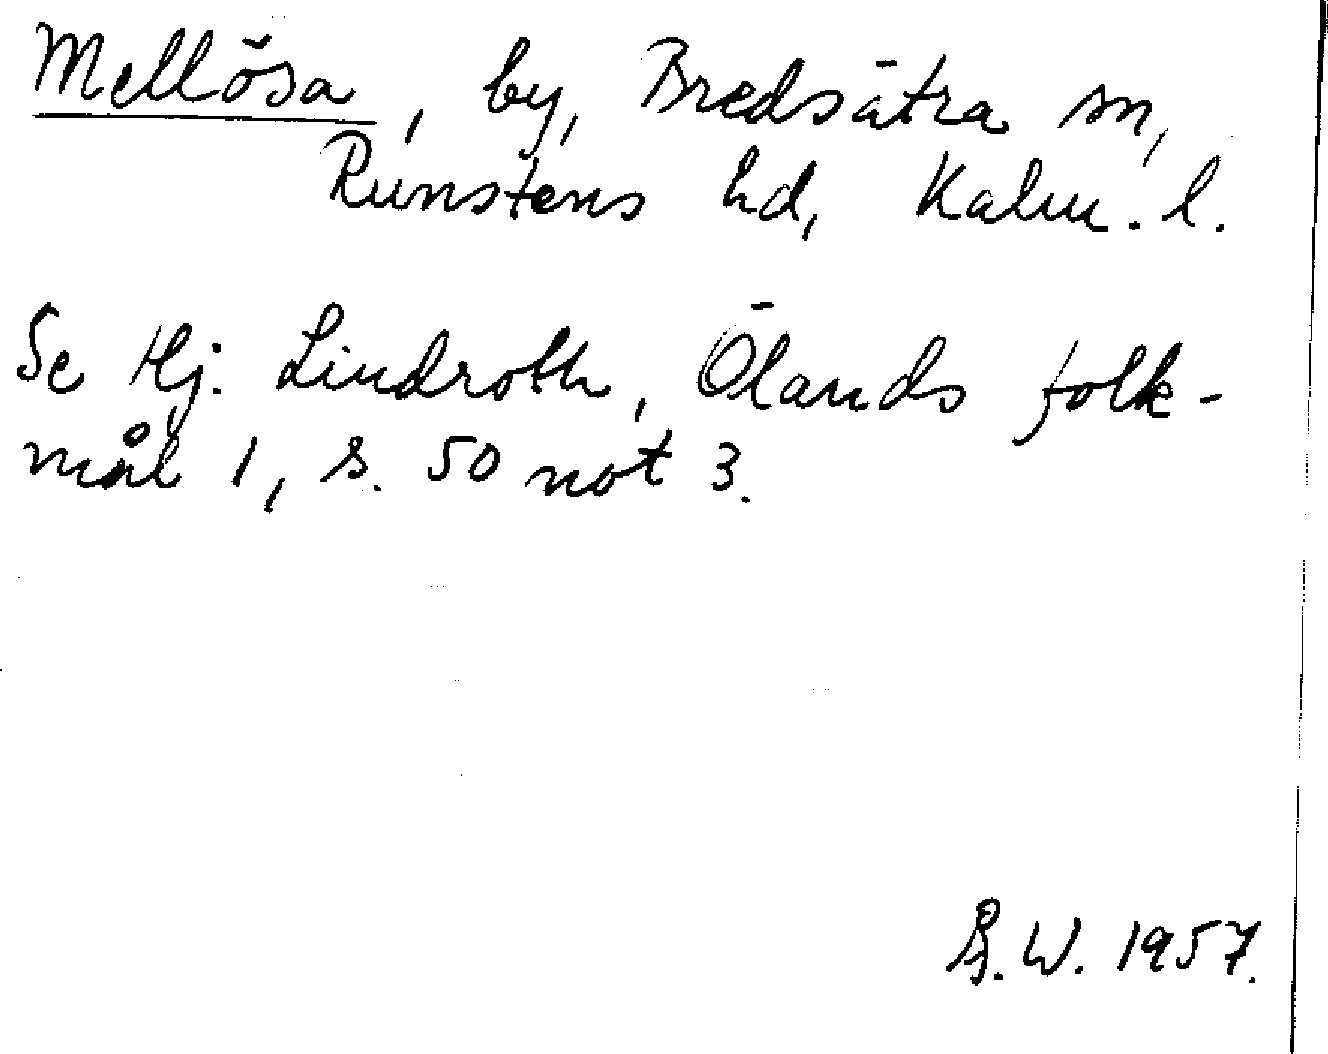 Mellösa, by, Bredsätra sn,
Runstens hd, Kalm. l.
Se Hj. Lindroth, Ölands folk-
mål 1, s. 50 not 3.
W. 1957.